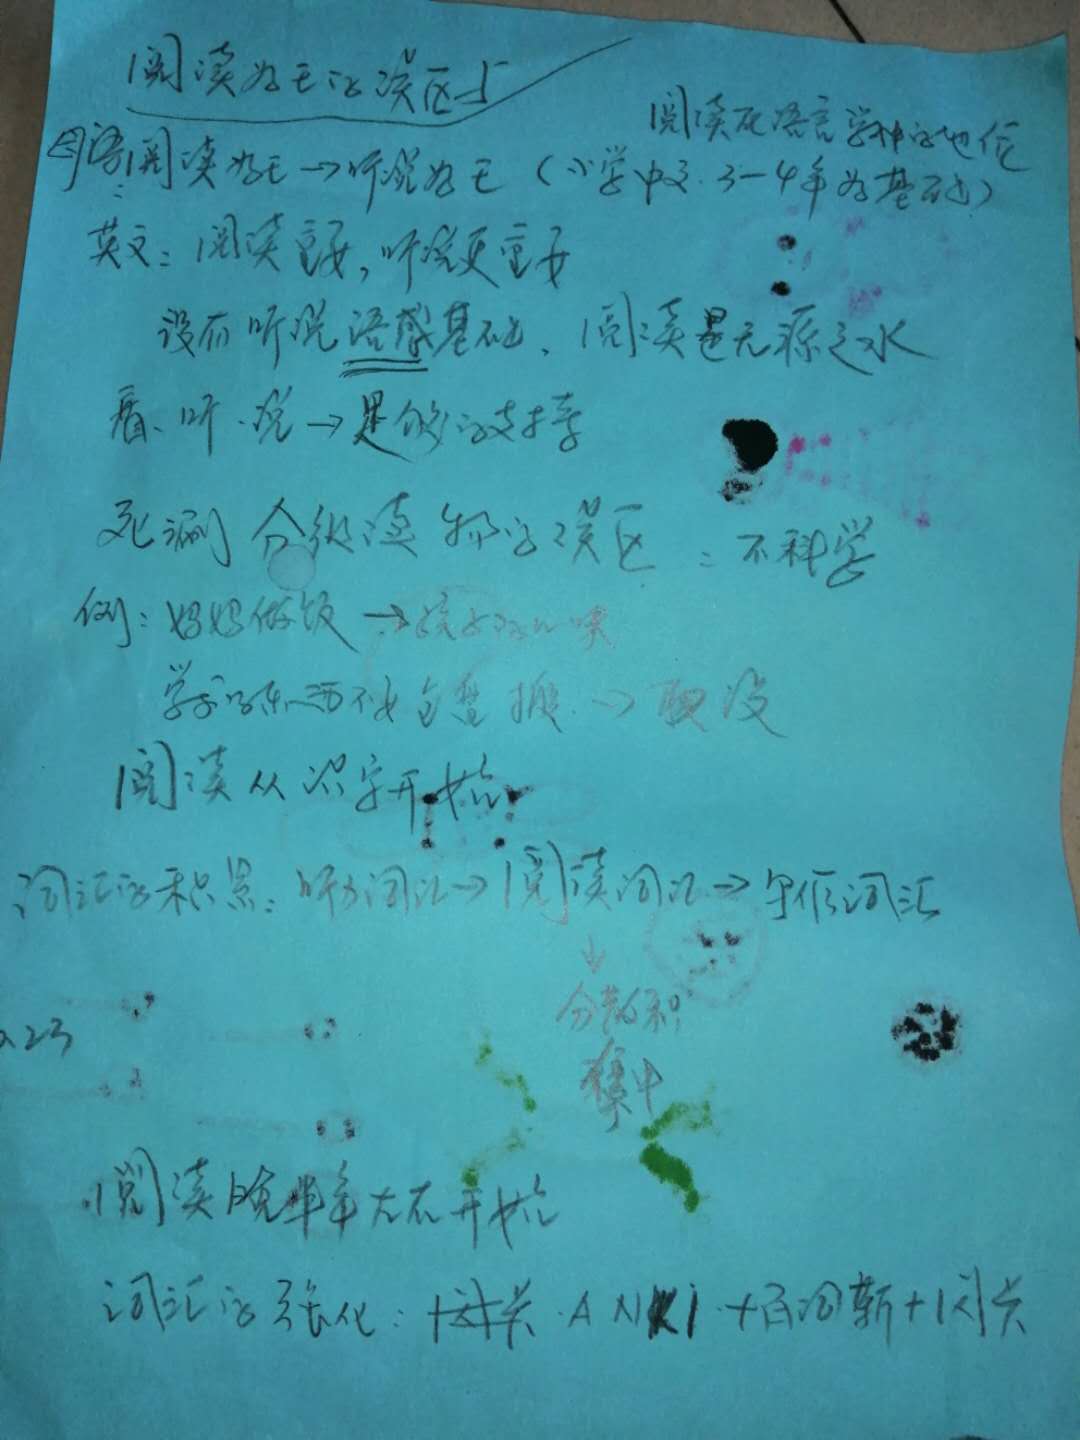 阅读为王的误区与
阅读在语言学科的地位
母语:阅读为王→听说为王(小学中文.3-4年为基础)
英文:阅读重要,听说更重要
没有听说语感基础、阅读是无源之水
看、听.说→足够的支撑
死涮分级读物的误区:不科学
例:妈妈做饭→孩子
学的东西不要 →
阅读从识字开始
词汇的积累:听力词汇→阅读词汇→写作词汇
↓
分散
集中
23
阅读晚半年左右开始
词汇的强化: ANKI.+百词斩+闪卡